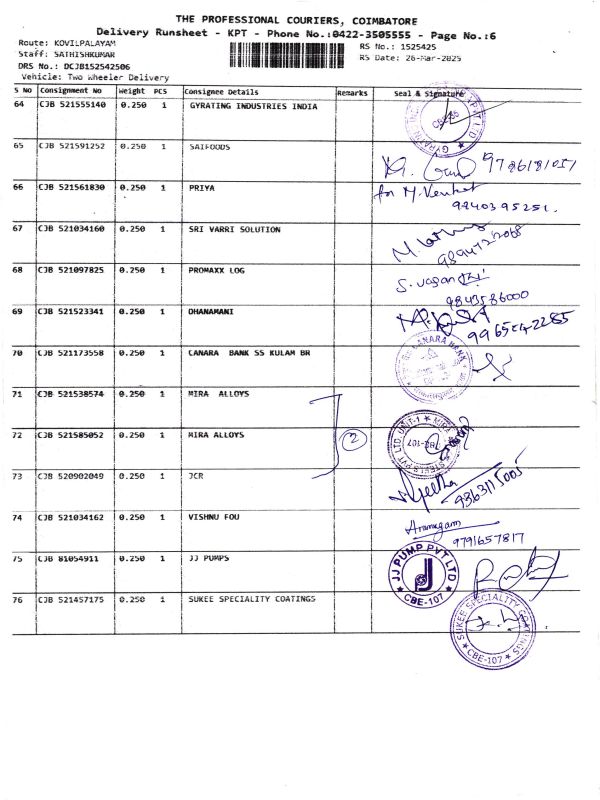 THE PROFESSIONAL COURIERS, COIMBATORE
Delivery Runsheet - KPT - Phone No.:0422-3505555 - Page No.:6
Route: KOVILPALAYAM
RS No.: 1525425
Staff: SATHISHKUMAR
RS Date: 26-Mar-2025
DRS No.: DCJB152542506
Vehicle: Two Wheeler Delivery
S No Consignment No Weight PCS Consignee Details Remarks Seal & Signature
64 CJB 521555140 0.250 1 GYRATING INDUSTRIES INDIA
65 CJB 521591252 0.250 1 SAIFOODS
9786181057
66 CJB 521561830 0.250 1 PRIYA for M. Venkat
9840395251.
67 CJB 521034160 0.250 1 SRI VARRI SOLUTION
68 CJB 521097825 0.250 1 PROMAXX LOG
9843586000
69 CJB 521523341 0.250 1 DHANAMANI
9965542285
70 CJB 521173558 0.250 1 CANARA BANK SS KULAM BR
CANARA BANK
71 CJB 521538574 0.250 1 MIRA ALLOYS
72 CJB 521585052 0.250 1 MIRA ALLOYS 2
73 CJB 520902049 0.250 1 JCR Geetha
9363115005
74 CJB 521034162 0.250 1 VISHNU FOU Arumugam
9791657817
75 CJB 81054911 0.250 1 JJ PUMPS
JJ PUMP PVT LTD
CBE-107
76 CJB 521457175 0.250 1 SUKEE SPECIALITY COATINGS
SUKEE SPECIALITY COATINGS
CBE-107